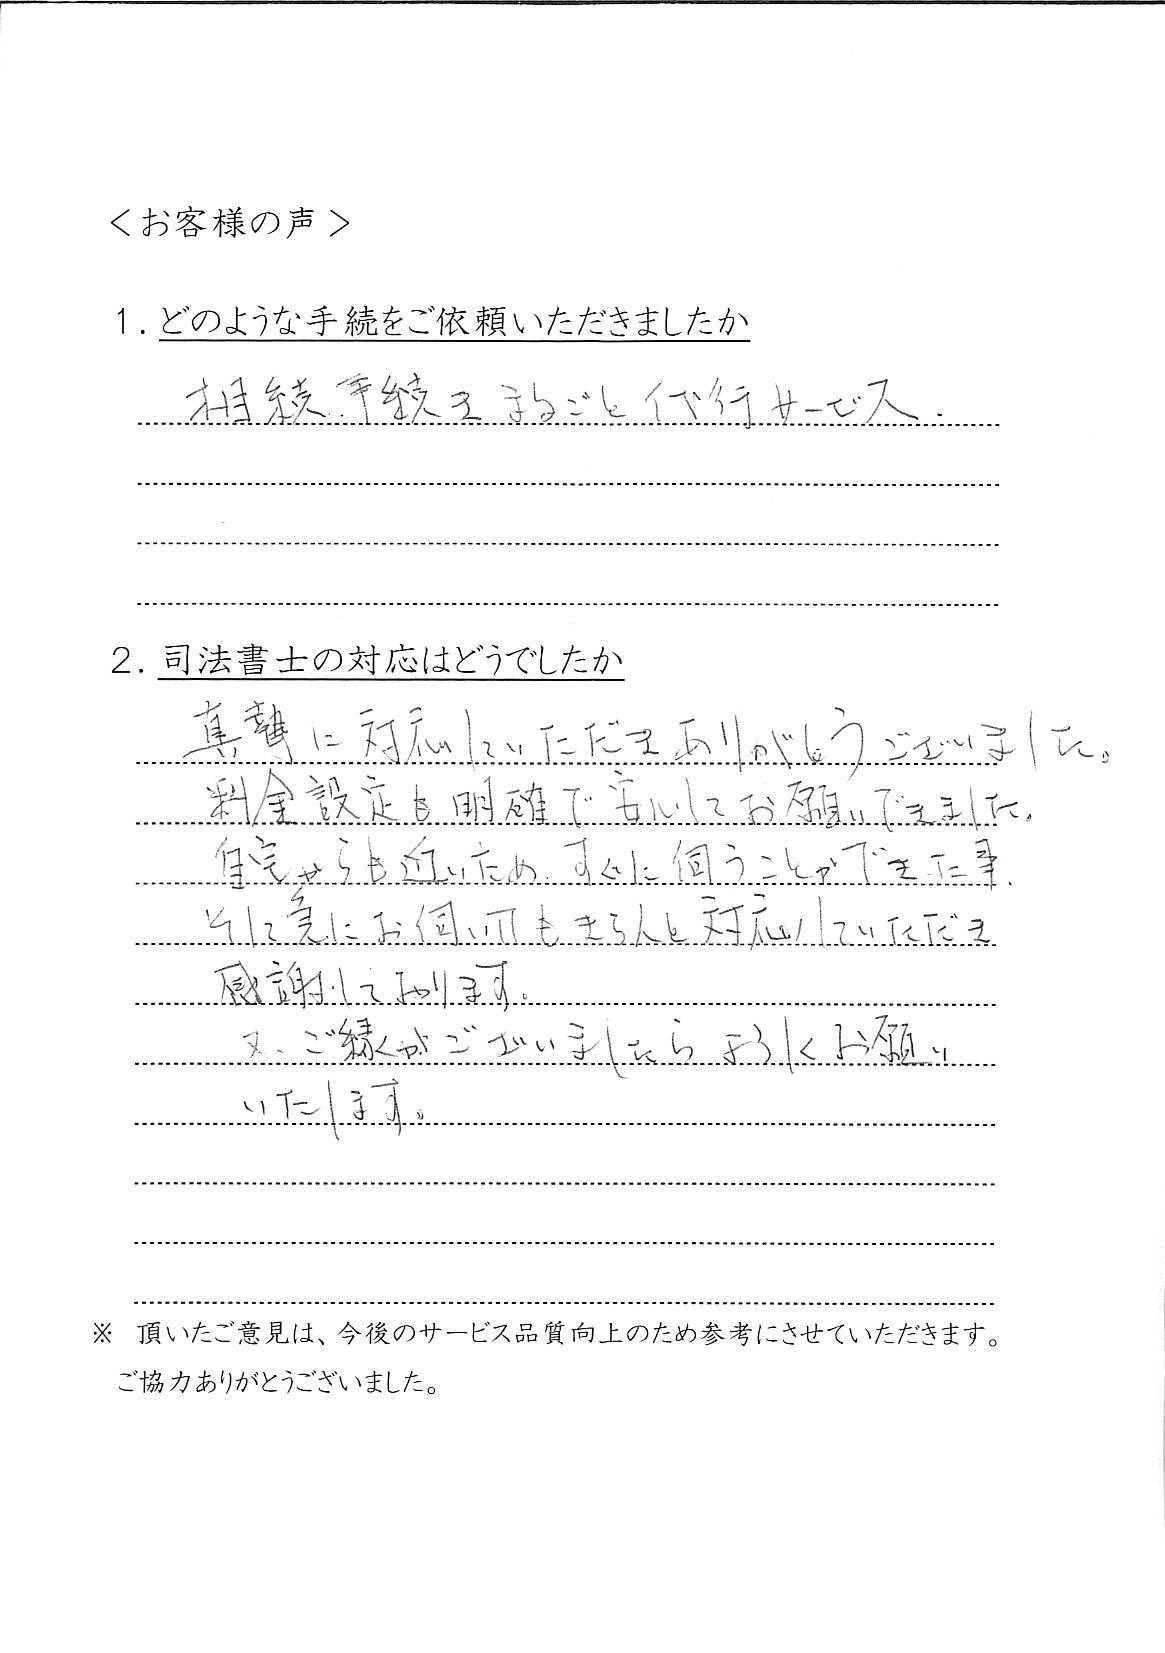 ＜お客様の声＞
１．どのような手続をご依頼いただきましたか
相続手続きまるごと代行サービス．
２．司法書士の対応はどうでしたか
真摯に対応していただきありがとうございました。
料金設定も明確で安心してお願いできました。
自宅からも近いため、すぐに伺うことができた事、
そして急にお伺いしてもきちんと対応していただき
感謝しております。
又、ご縁がございましたらよろしくお願い
いたします。
※　頂いたご意見は、今後のサービス品質向上のため参考にさせていただきます。
ご協力ありがとうございました。